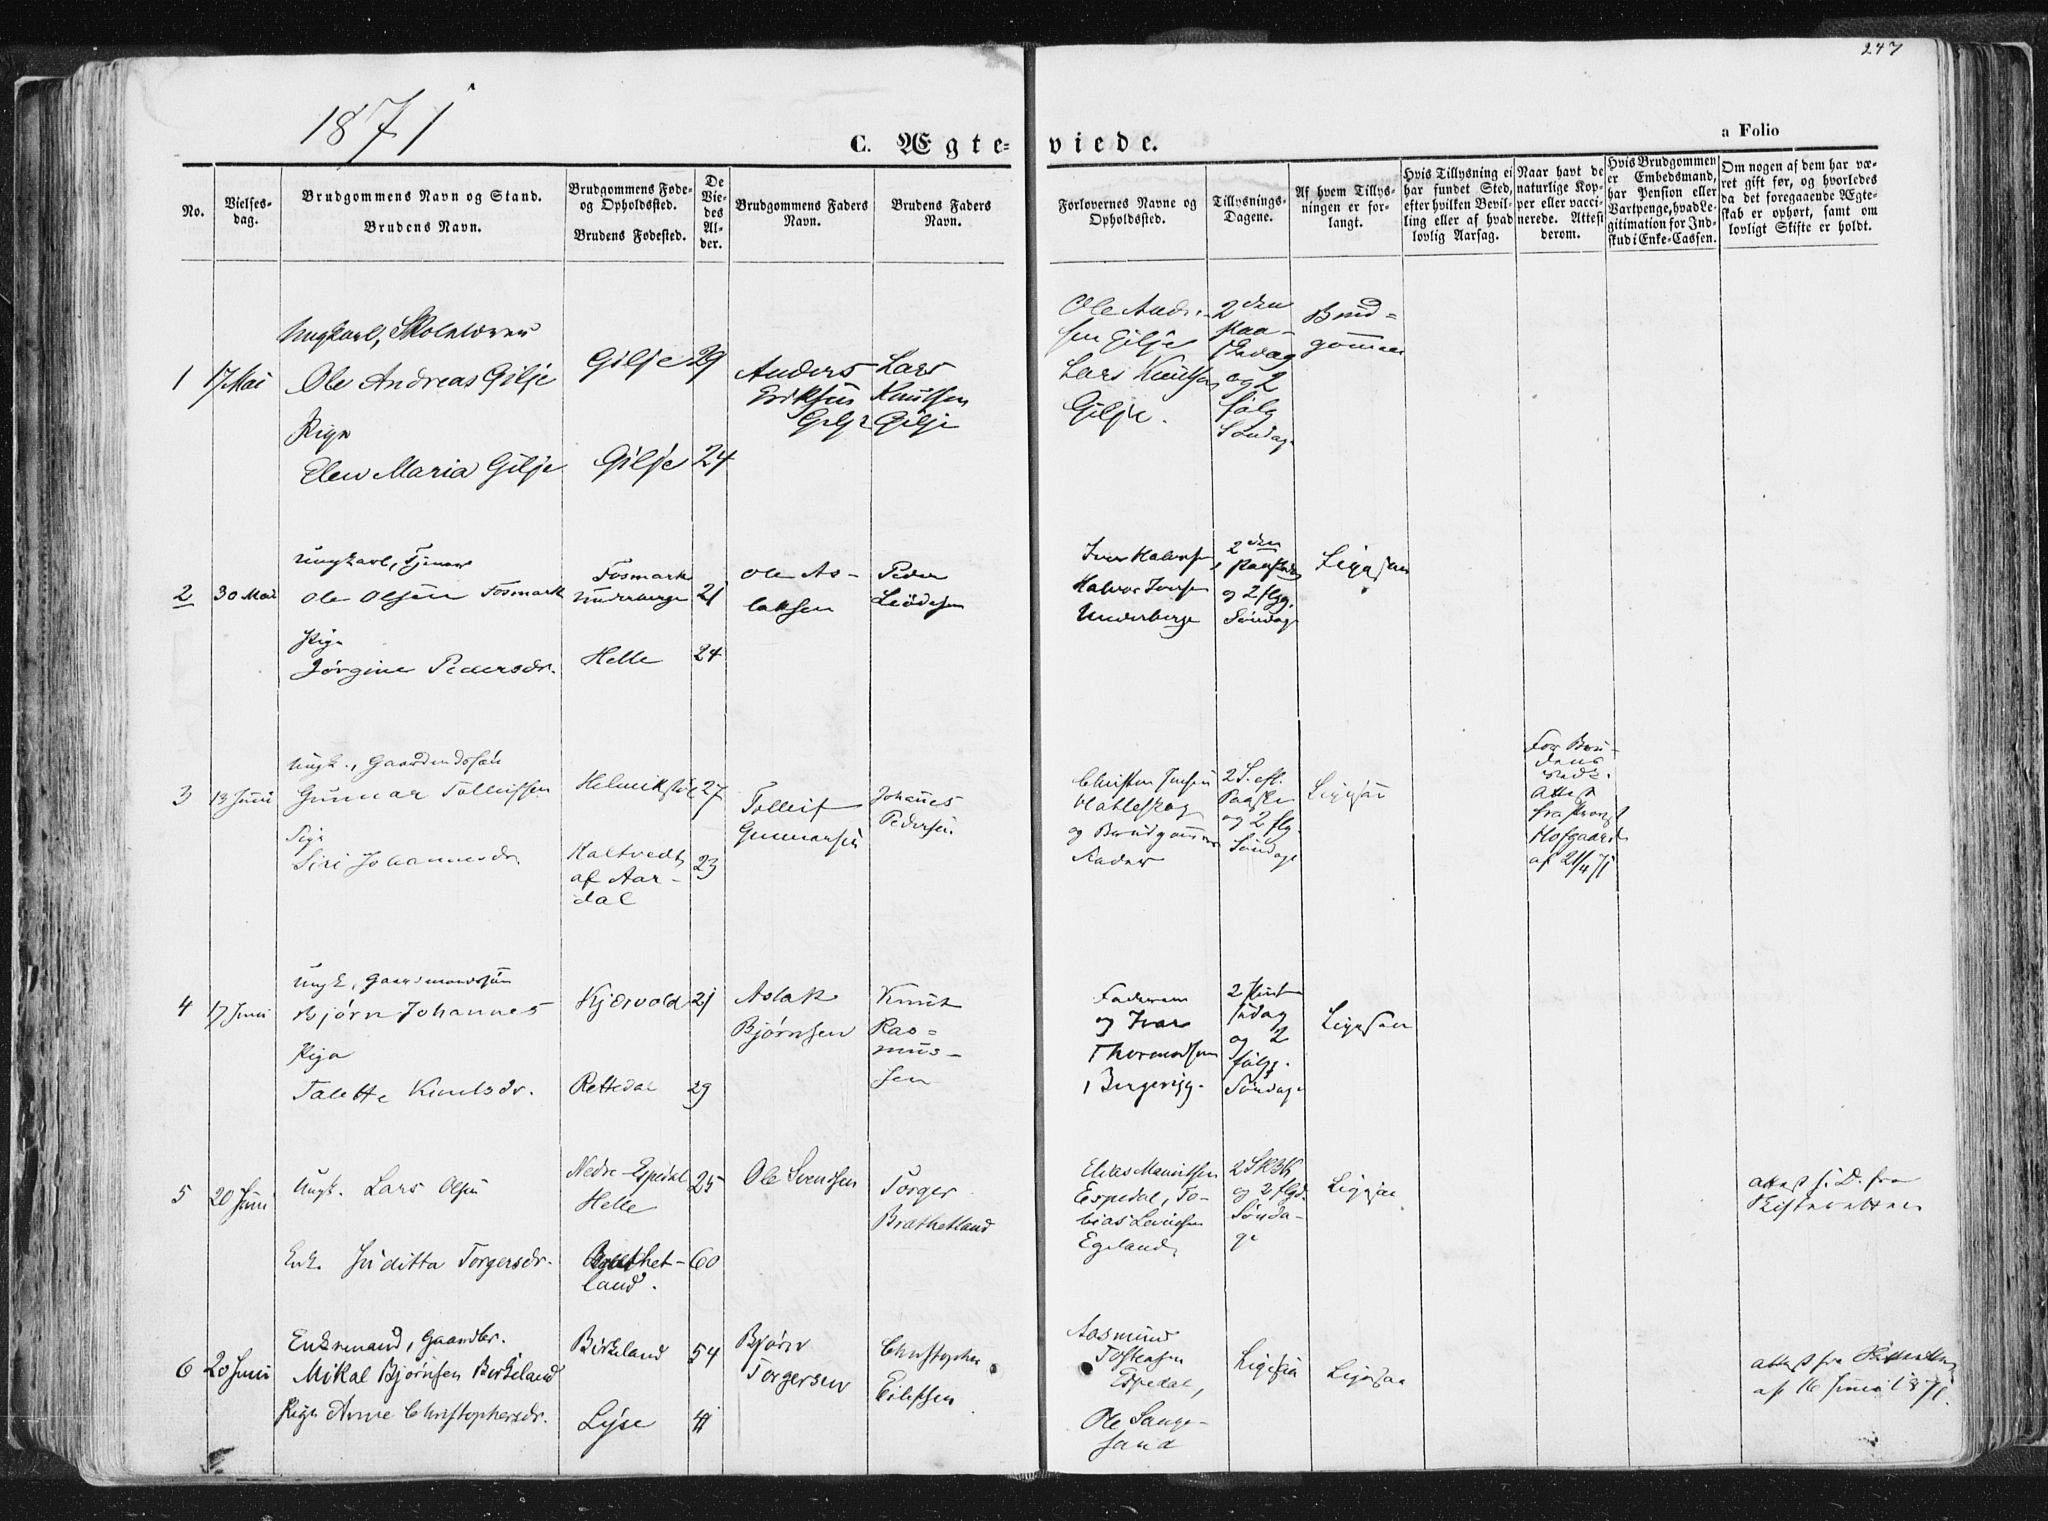 247
1871
C. Ægteviede.
a Folio
No.
Vielsesdag.
Brudgommens Navn og Stand.
Brudens Navn.
Brudgommens Føde- og Opholdssted.
Brudens Fødested.
De Viedes Alder.
Brudgommens Faders Navn.
Brudens Faders Navn.
Forlovernes Navne og Opholdssted.
Tillysnings-Dagene.
Af hvem Tillysningen er forlangt.
Hvis Tillysning ei har fundet Sted, efter hvilken Bevilling eller af hvad lovlig Aarsag.
Naar havt de naturlige Kopper eller vaccinerede. Attest derom.
Hvis Brudgommen er Embedsmand, har Pension eller Vartpenge, hvad Legitimation for Indskud i Enke-Cassen.
Om nogen af dem har været gift før, og hvorledes da det foregaaende Ægteskab er ophørt, samt om lovligt Skifte er holdt.
1
17 Mai
Ungkarl, Skolelærer
Ole Andreas Gilje
Pige
Elen Maria Gilje
Gilje
Gilje
29
24
Anders
Eriksen
Gilje
Lars
Knutsen
Gilje
Ole Andr-
sen Gilje
Lars Knutsen
Gilje.
2den
Paa-
skedag
og 2
følg
Søndage
Brud=
gommen
2
30 Mai
Ungkarl, Tjener
Ole Olsen Fosmark
Pige
Jørgine Pedersdr.
Fosmark
Underberge
Helle
21
24
Ole As-
laksen
Peder
Iver Halvorsen,
Halvor Iversen
Underberge
2den
Paaskedag
og 2 flgg.
Søndage
Ligesaa
3
13 Juni
Ungk., Gaardmdssøn
Gunnar Tolleifsen
Pige
Siri Johannesdr
Helmikstøl
Kaltvedt
af Aar-
dal
27
23
Tolleif
Gunnarsen
Johannes
Pedersen
Christen Jensen
Hatleskog
og Brudgommens
Fader
2 S. eft.
Paaske
og 2 flg.
Søndage
Ligesaa
For Bru-
dens
Vedk.
Attest
fra Provst
Hofgaard
af 21/4 71
4
17 Juni
Ungk., Gaardmandssøn
Bjørn Johannes
Pige
Talette Knutsdr.
Kjærvold
Rettedal
21
29
Aslak
Bjørnsen
Knut
Ras=
mus-
sen
Faderen
og Ivar
Thormodsen
2 Pint
sedag
og 2
følgg.
Søndage
Ligesaa
5
20 Juni
Ungk. Lars Olsen
Enk. Juditta Torgersdr.
Nedre-Espedal
Helle
land.
25
60
Ole Svendsen
Torger
Brathetland
Elias Mauritsen
Espedal, To-
bias Levinsen
Egeland
og 2 flgd.
Sønda-
ge
Ligesaa
attest f. D. fra
Skifteretten
6
20 Juni
Enkemand, Gaardbr.
Mikal Bjørnsen Birkeland
Pige Anne Christophersdr.
Birkeland
Lyse
54
41
Bjørn
Torgersen
Christopher
Eilefsen
Aasmund
Tostensen
Espedal,
Ole Lange-
sand
Ligesaa
Ligesaa
attest fra Skifteretten
af 16 Juni 1871.